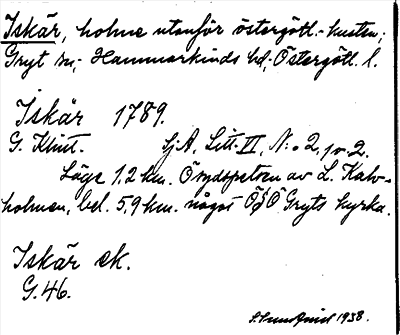 Iskär, holme utanför östergötl.-kusten;
Gryt sn, Hammarkinds hd, Östergötl. l.
Iskär 1789.
G. Klint. Sj.A, Litt. VI, N:o 2, 1 v. 2.
Läge 1,2 km. Ö sydspetsen av L. Kalv-
holmen, bel. 5,9 km. något ÖSÖ Gryts kyrka.
Iskär ek.
G.46.
1938.